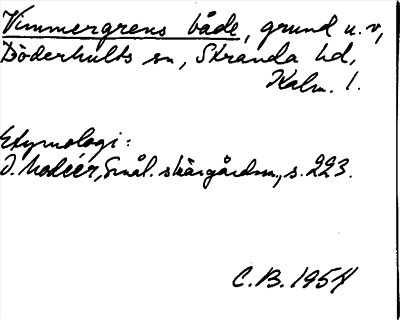 Vimmergrens både, grund u. v,
Döderhults sn, Stranda hd,
Kalm. l.
Etymologi:
I. Modéer, Smål. skärgårdsn., s. 223.
C.B. 1954